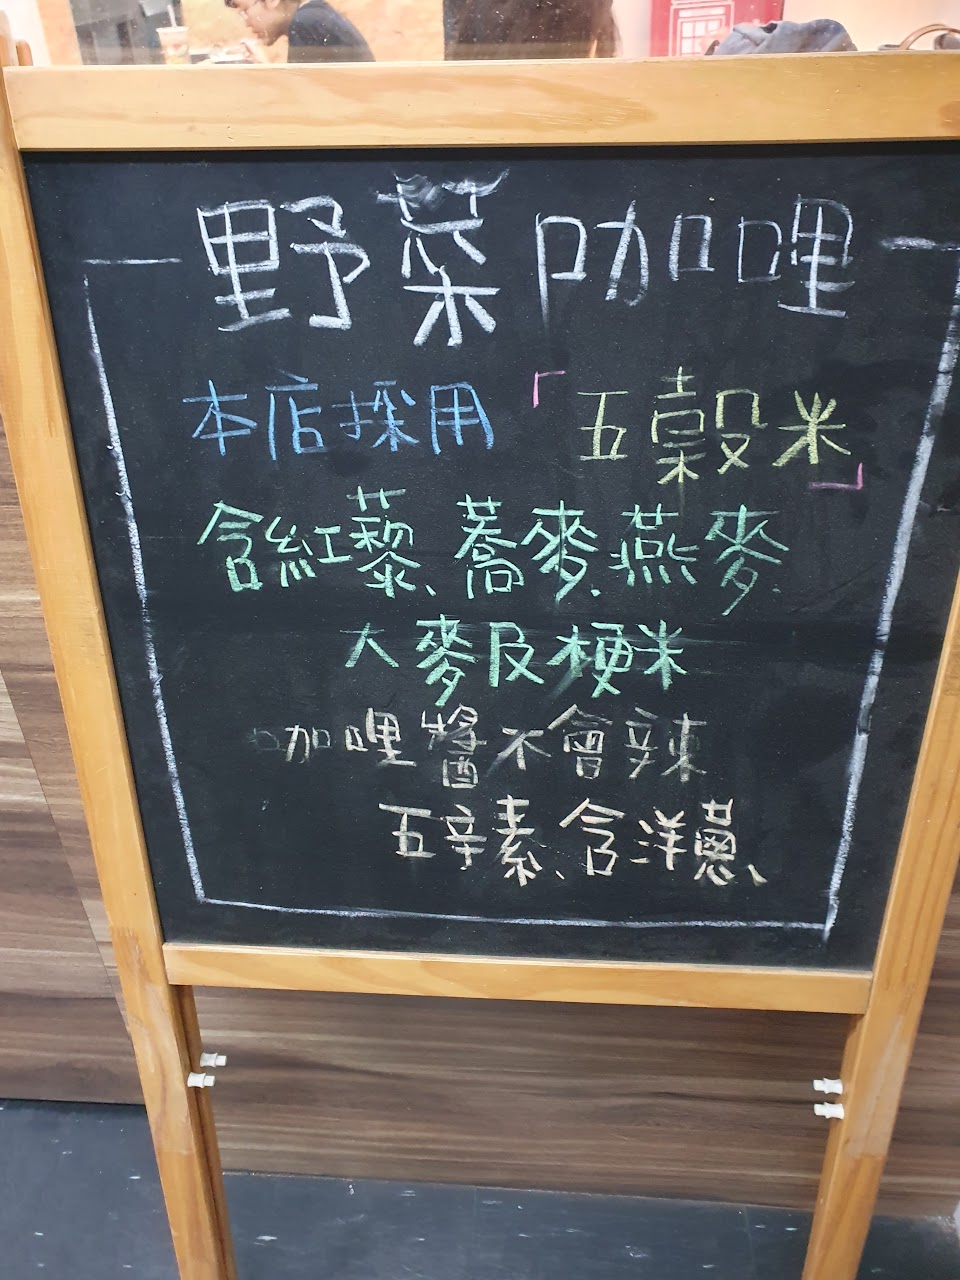 野菜咖哩
本店採用「五穀米」
含紅藜、蕎麥、燕麥、
大麥及梗米
咖哩醬不會辣
五辛素、含洋蔥、